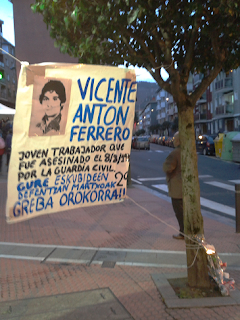 VICENTE
ANTON
FERRERO
JOVEN TRABAJADOR QUE
FUE ASESINADO EL 8/3/19
POR LA GUARDIA CIVIL.
GURE ESKUBIDEEN
DEFENTSAN MARTXOAK 29
GREBA OROKORRA!!